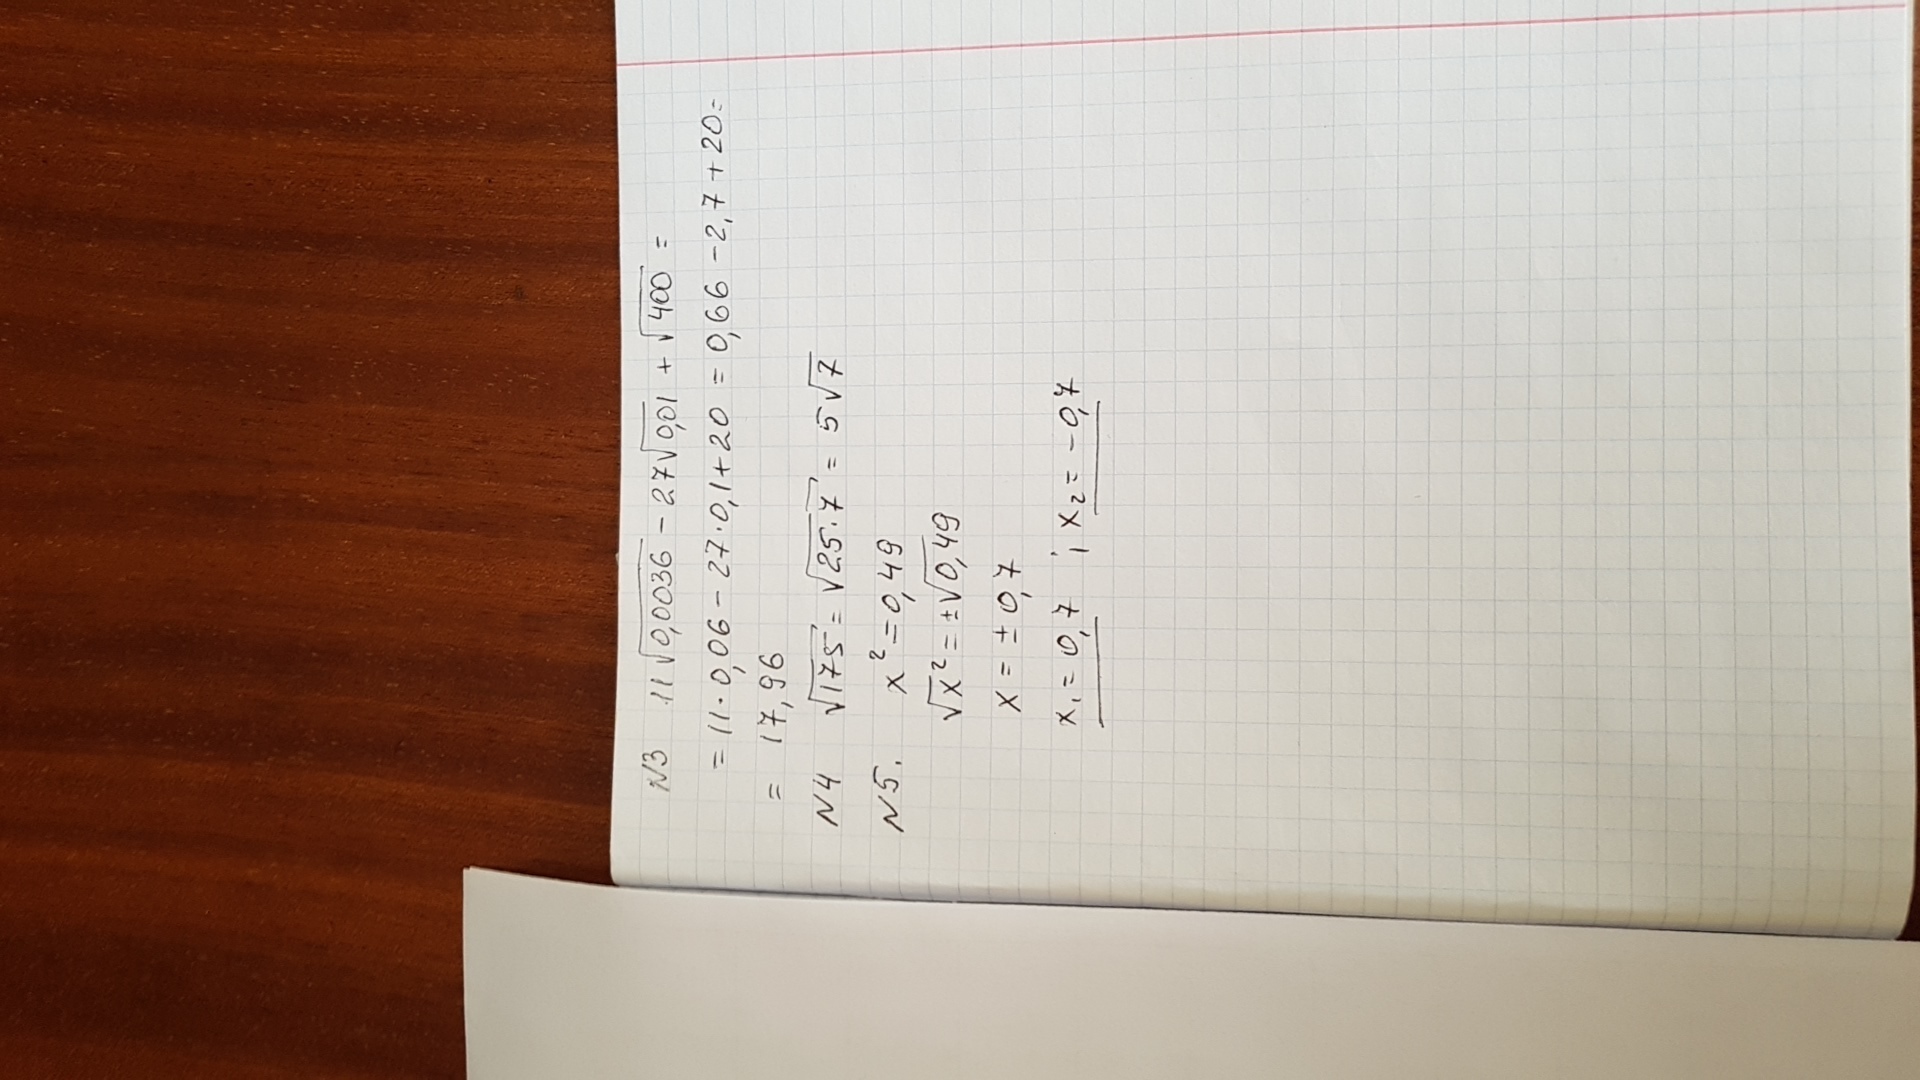 N3 11√0,0036 - 27√0,01 + √400 =
= 11·0,06 - 27·0,1+20 = 0,66 - 2,7 + 20 =
= 17,96
N4 √175 = √25·7 = 5√7
N5. x² = 0,49
√x² = ±√0,49
x = ± 0,7
x₁ = 0,7 ; x₂ = -0,7